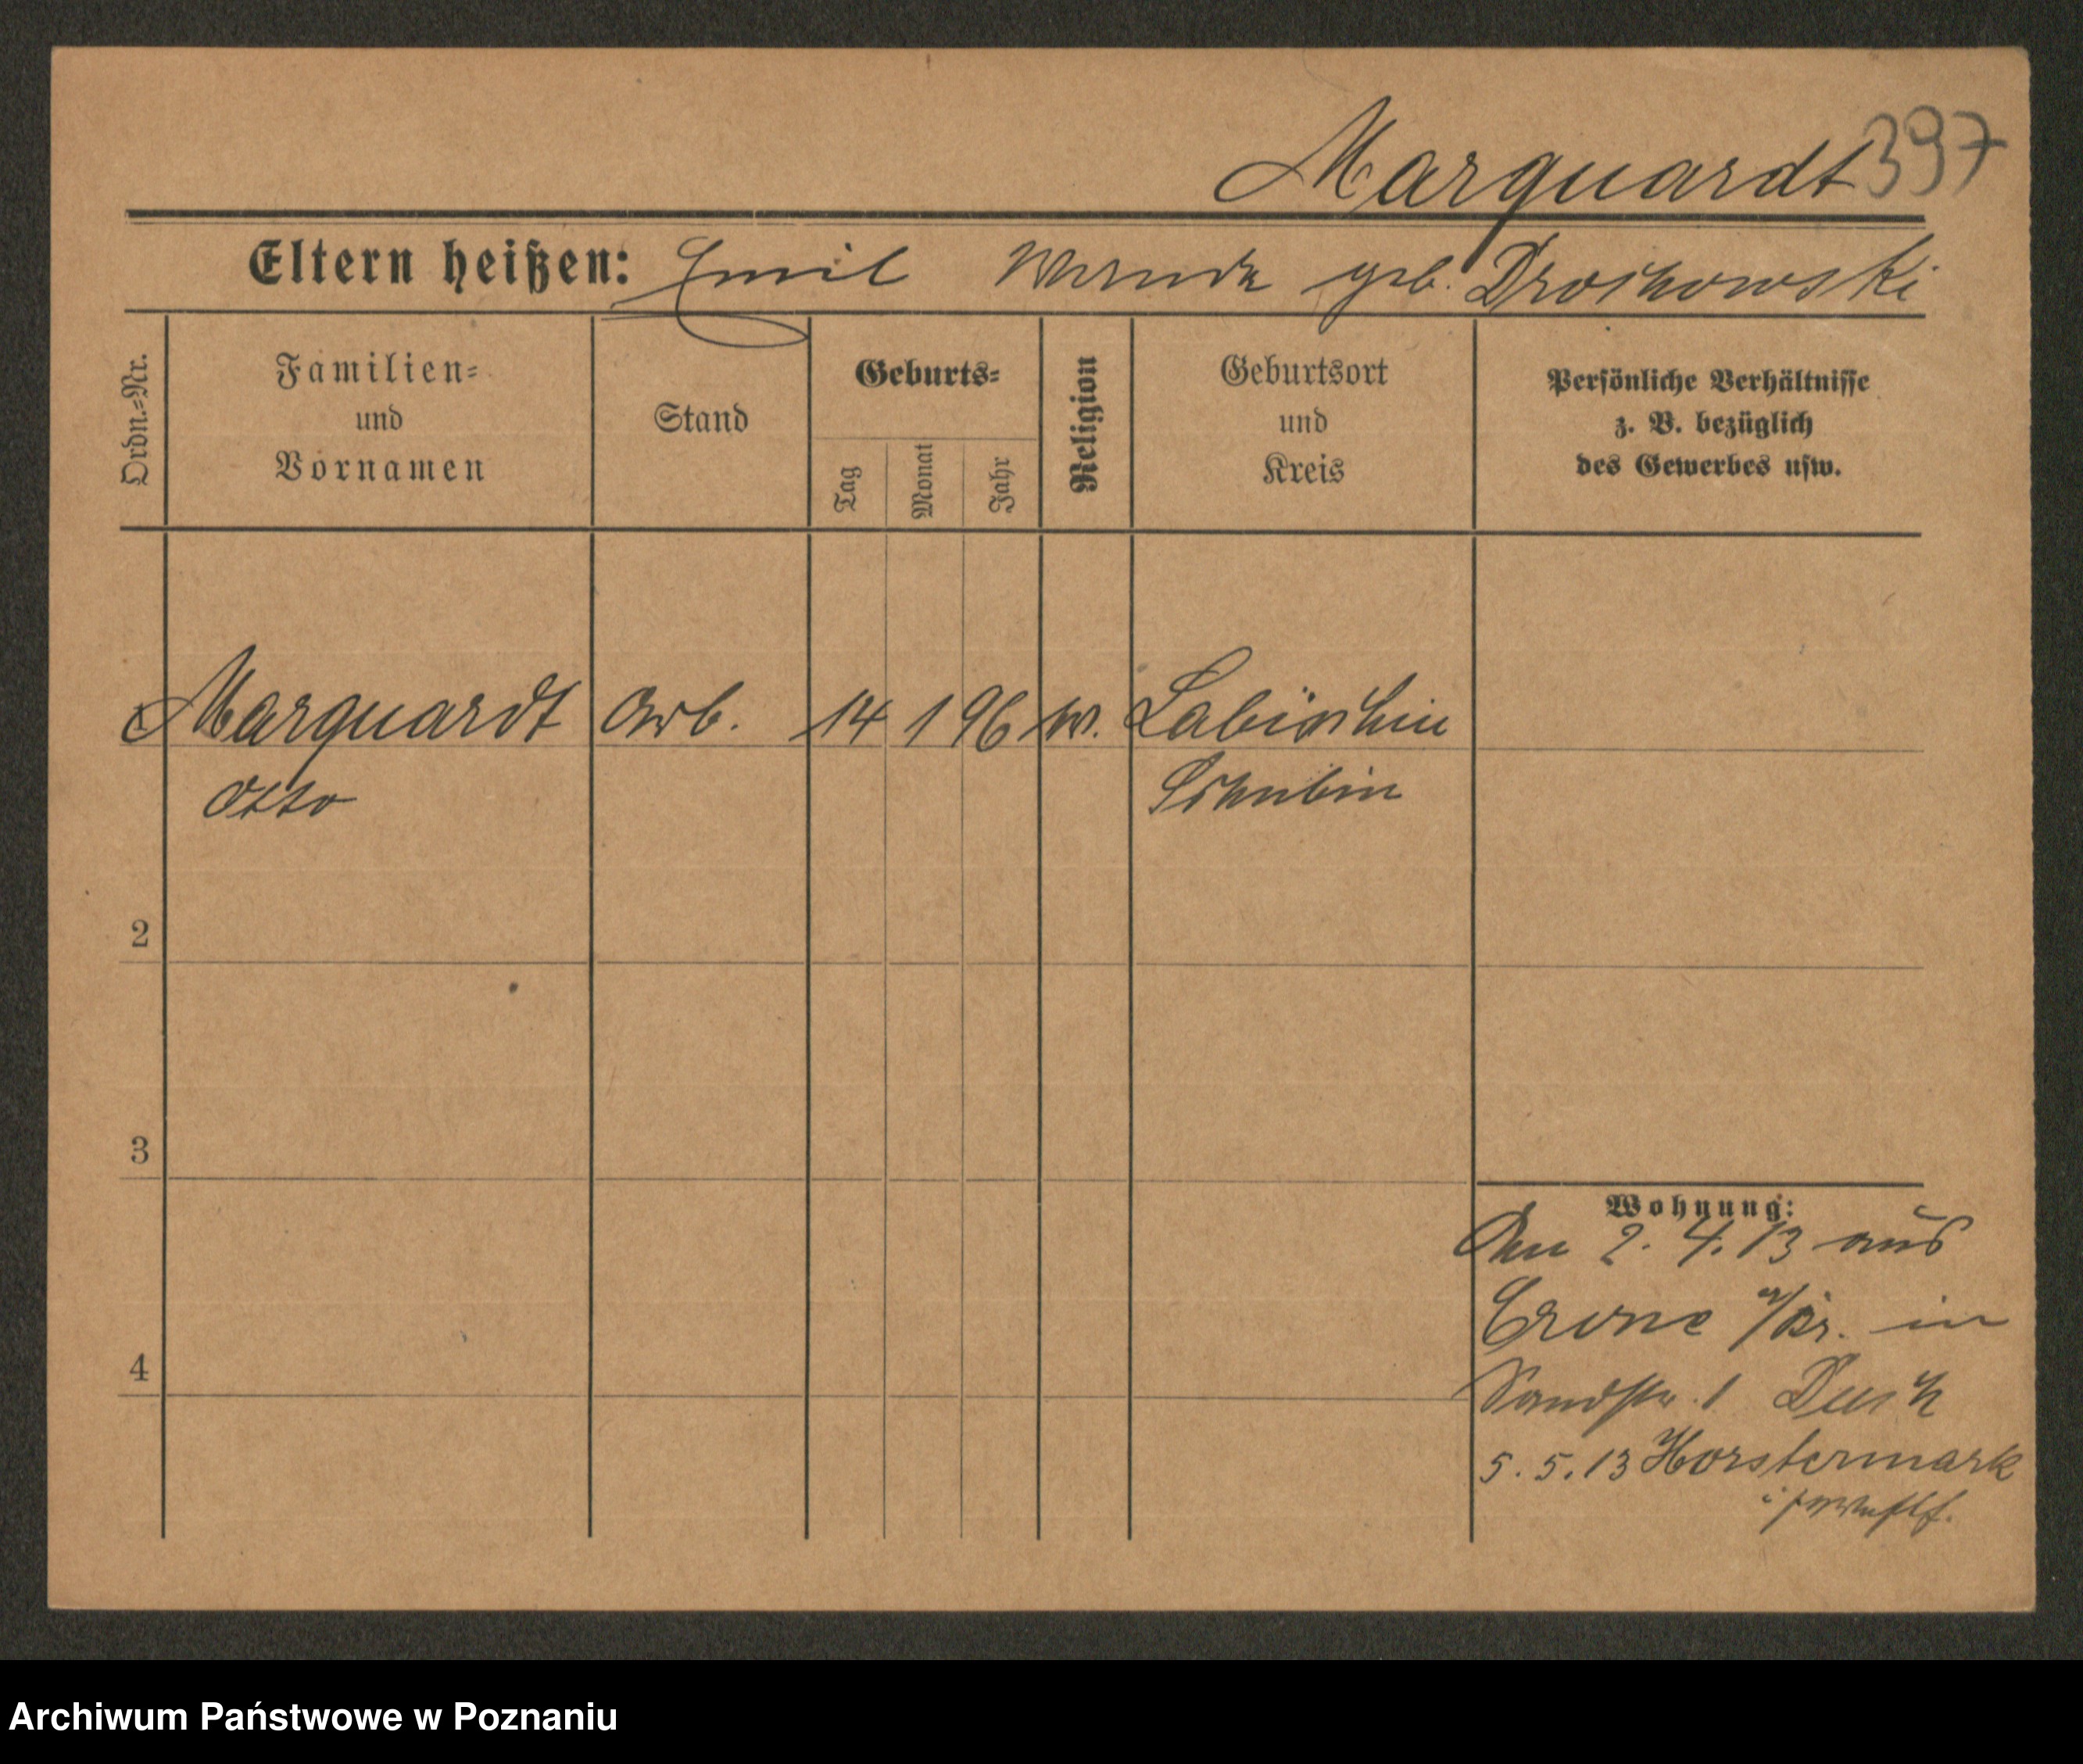 Marquardt 397
Eltern heißen: Emil geb. Droikowski
Ordn.=Nr.
Familien=
und
Vornamen
Stand
Geburts=
Tag
Monat
Jahr
Religion
Geburtsort
und
Kreis
Persönliche Verhältnisse
z. B. bezüglich
des Gewerbes usw.
Marquardt Arb. 14 1 96 Labischin
Otto Schubin
2
3
4
Wohnung:
2. 4. 13 aus
Crone a/Br. in
Sandstr. 1
5. 5. 13 Horstermark
Archiwum Państwowe w Poznaniu